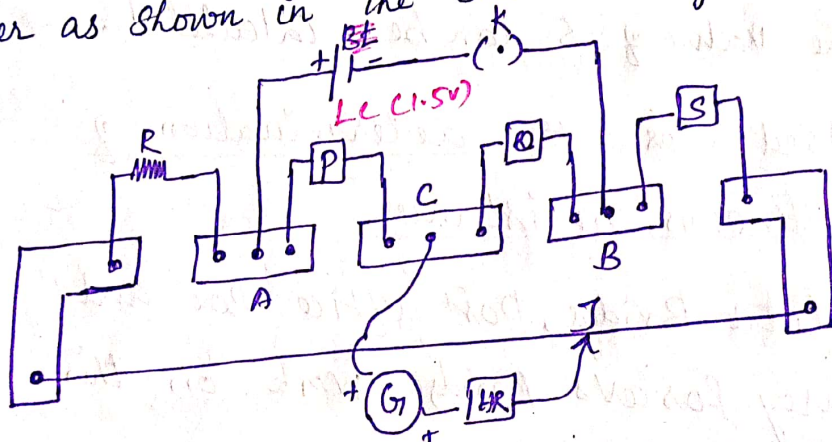 er as shown in the
Bt K
+ -
Le (1.5v)
R P Q S
A C B
J
+ G HR
+